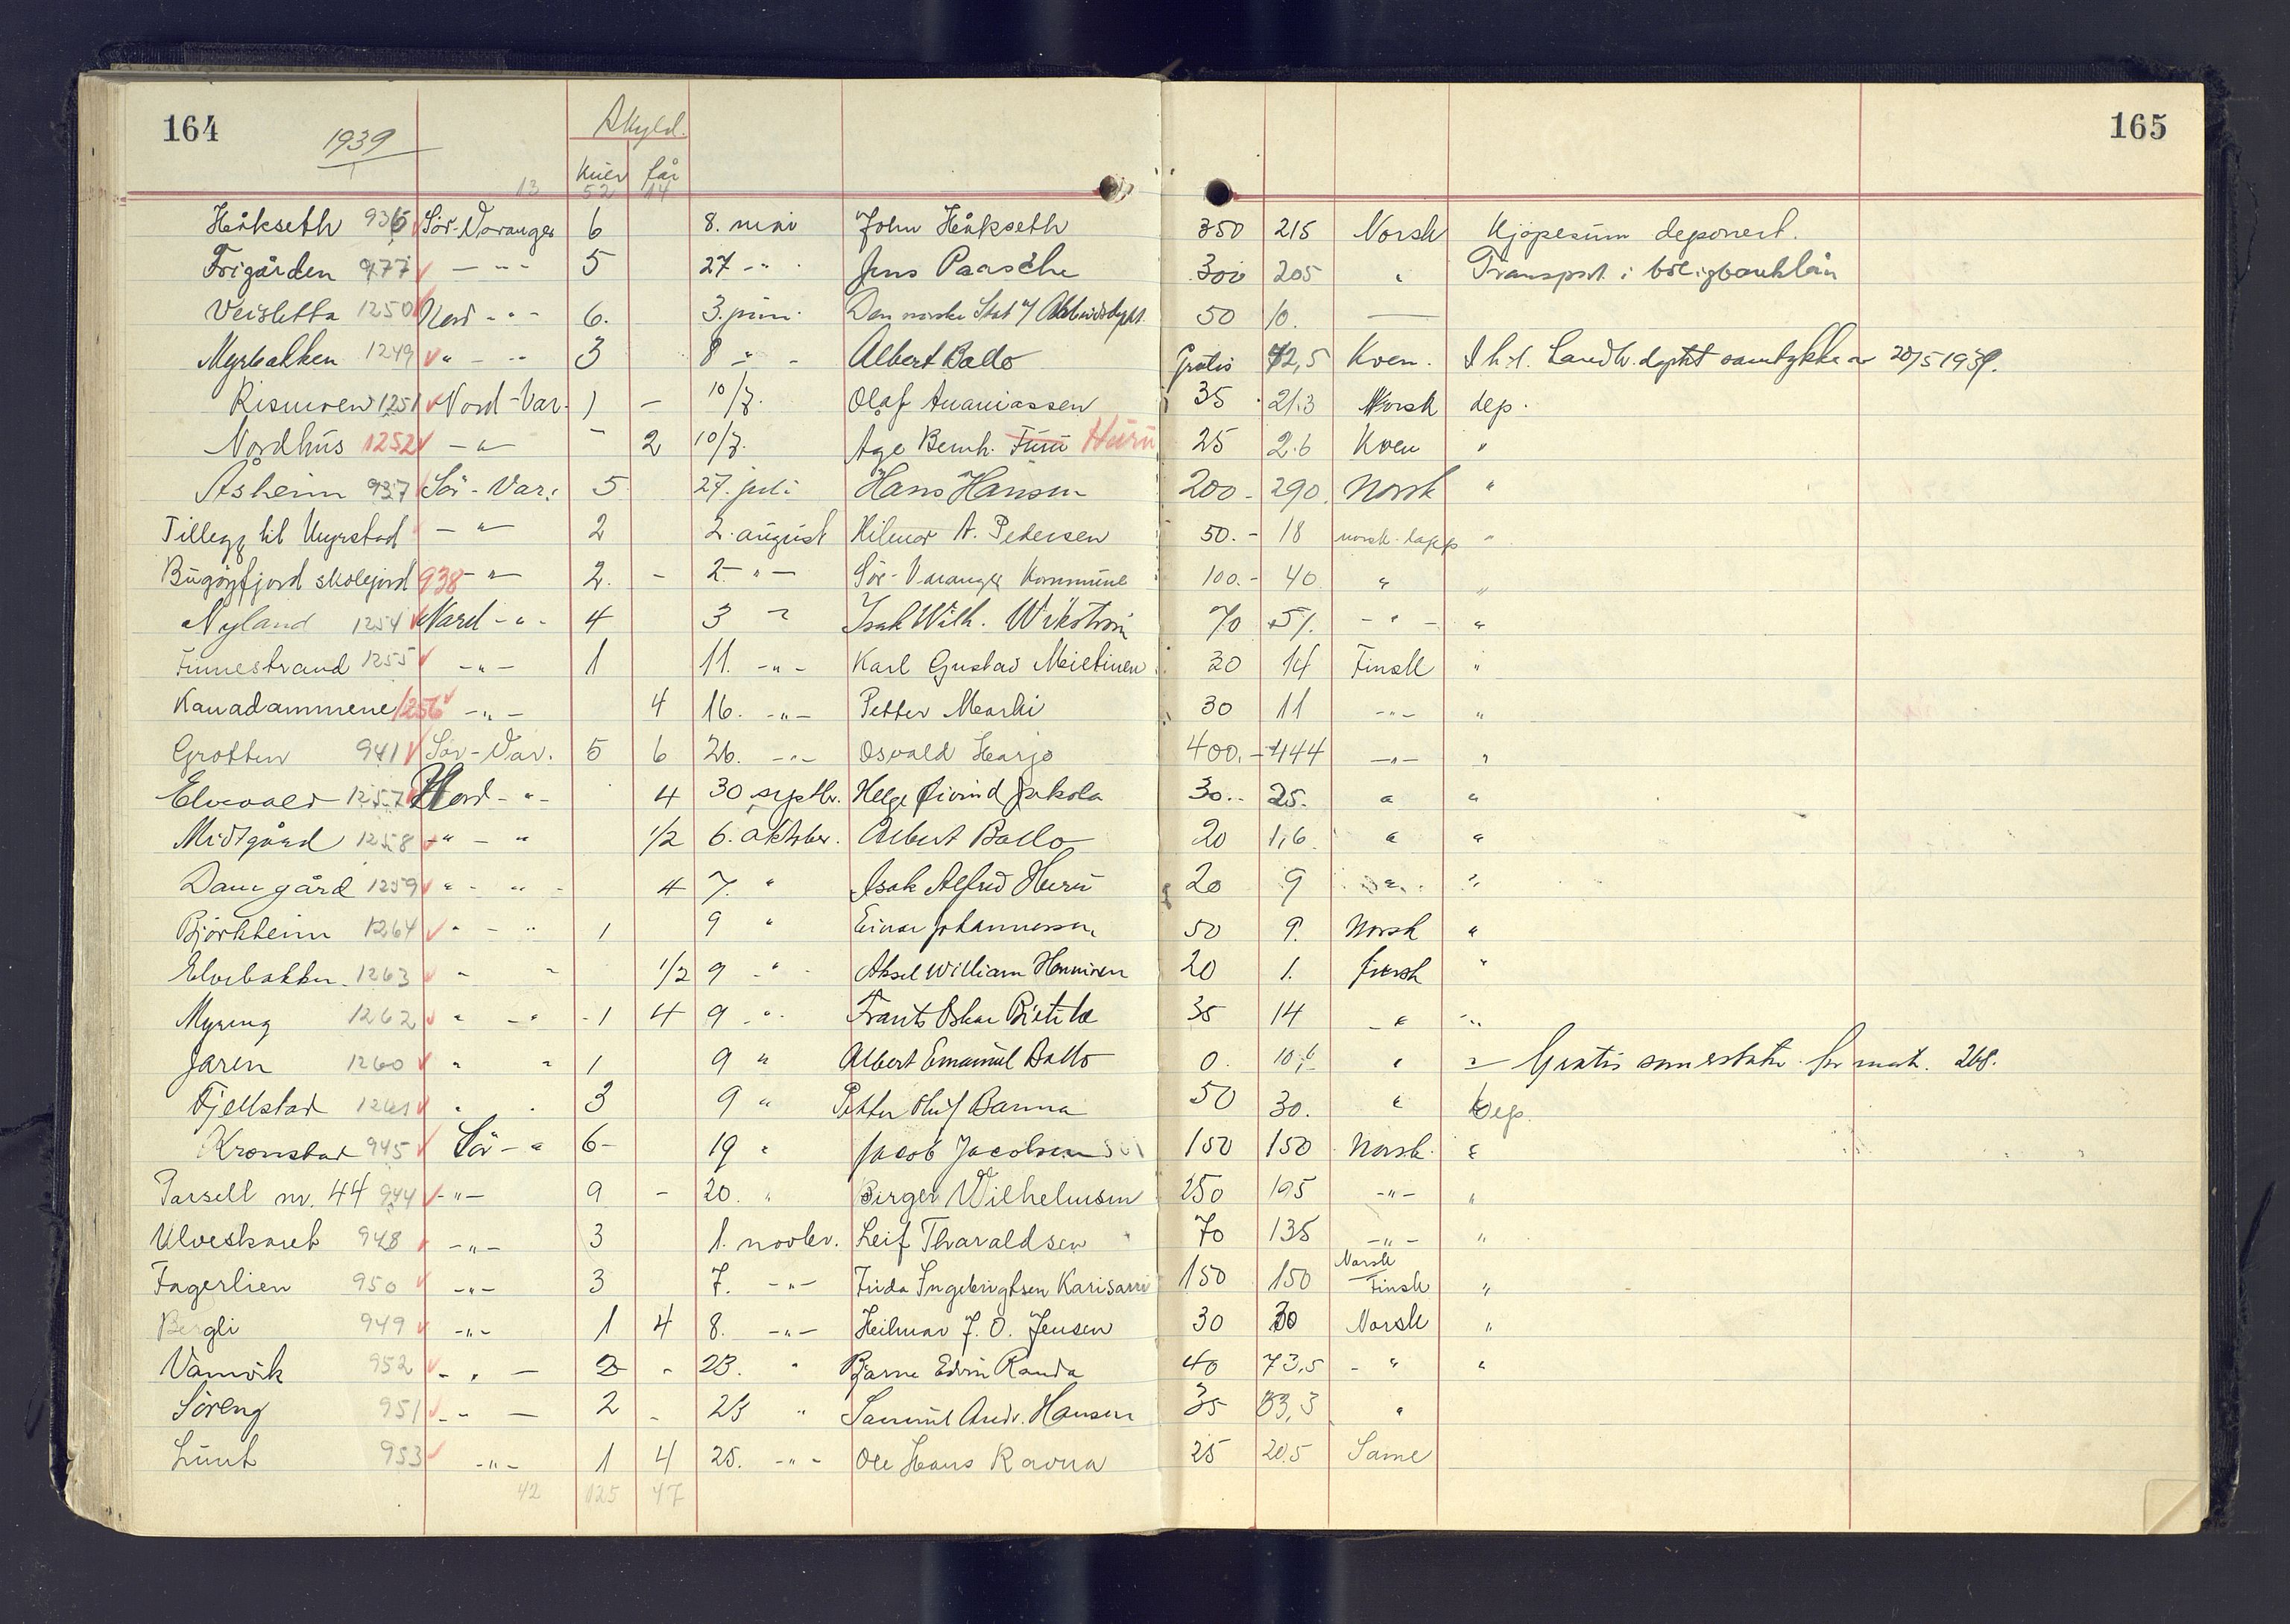 164 165
1939 Skyld.
Kuer får
13 52 14
Håkseth 936 Sør-Varanger 6 8. mai John Håkseth 350 215 Norsk Kjøpesum deponert.
Frigården 977 — " — 5 27 - " - Jens Paasche 300 205 " Transport i boligbanklån
Veisletta 1250 Nord - " - 6. 3. juni. Den norske Stat v/ Arbeidsdept. 50 10. —
Myrbakken 1249 " - " 3 8 - " - Albert Ballo Gratis 72,5 Kven. I h.t. Landb. deptet samtykke av 20/5 1939.
Rismoen 1251 Nord-Var. 1 — 10/7. Olaf Ananiassen 35 21.3 Norsk dep.
Nordhus 1252 — " — - 2 10/7. Age Bernh. Furu Huru 25 2.6 Kven "
Åsheim 937 Sør-Var. 5 27. juli Hans Hansen 200 - 290. Norsk "
Tillegg til Myrstad — " — 2 2. august Hilmar A. Pedersen 50.- 18 norsk-lapp "
Bugøyfjord skolejord 938 - " — 2. - 2. - " - Sør-Varanger Kommune 100.- 40 " "
Nyland 1254 Nord - " - 4 3 " Isak Wilh. Wikstrøm 70 51. - " - "
Finnestrand 1255 - " - 1 11. - " - Karl Gustav Mietinen 30 14 Finsk "
Kanadammene 1256 - " - 4 16. - " - Petter Marki 30 11 - " - "
Grotten 941 Sør-Var. 5 6 26. - " - Osvald Harjo 400.- 444 - " - "
Elvevold 1257 Nord - " - 4 30 septbr. Helge Øivind Jakola 30.- 25. " "
Midtgård 1258 " - " 1/2 6. oktober. Albert Ballo 20 1,6. " "
Damgård 1259 " - " - 4 7. " Isak Alfred Huru 20 9 " "
Bjørkheim 1264 " - " 1 9 " Einar Johannessen 50 9. Norsk "
Elvebakken 1263 " " 1/2 9 - " - Aksel William Henninen 20 1. finsk "
Myreng 1262 " - " 1 4 9 - " - Frants Oskar Pietila 35 14 - " "
Jaren 1260 " " 1 9 " Albert Emanuel Ballo 0. 10,6 " " - Gratis som erstatn. for matr. 268.
Fjellstad 1261 " . 3 9 " Petter Oluf Banna 50 30. " Dep.
Kronstad 945 Sør - " 6- 19 " Jacob Jacobsen 150 150 Norsk. "
Parsell nr. 44 944 - " - 9 - 20. " Birger Wilhelmsen 250 195 - " - "
Ulveskaret 948 - " - 3 1. novbr. Leif Tharaldsen 70 135 - " - "
Fagerlien 950 - " - 3 7. - " - Frida Ingebrigtsen Karisarri 150 150 Norsk Finsk "
Bergli 949 - " - 1 4 8. - " - Heilmar J. O. Jensen 30 30 Norsk "
Vamvik 952 - " — 2 - 23. " Bjarne Edvin Randa 40 73,5 - " "
Søreng 951 - " — 2 - 23 " Samuel Andr. Hansen 35 83,3 "
Lunt 953 - " - 1 4 25. - " - Ole Hans Ravna 25 20.5 Same
42 125 47